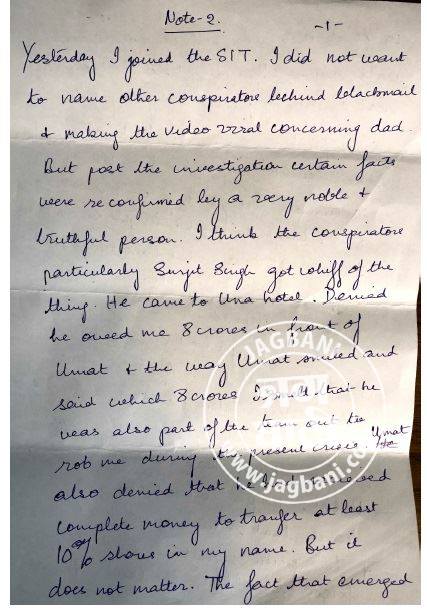 Note-2.
-1-
Yesterday I joined the SIT. I did not want
to name other conspirators behind blackmail
& making the video viral concerning dad.
But post the investigation certain facts
were reconfirmed by a very noble &
truthful person. I think the conspirators
particularly Surjit Singh got whiff of the
thing. He came to Una hotel. Denied
he owed me 8 crores in front of
Umat & the way Umat smiled and
said which 8 crores I smelt that he
was also part of the team out to
rob me during the present crisis. Umat
also denied that he had received
complete money to tranfer at least
10% shares in my name. But it
does not matter. The fact that emerged
JAGBANI
www.jagbani.com